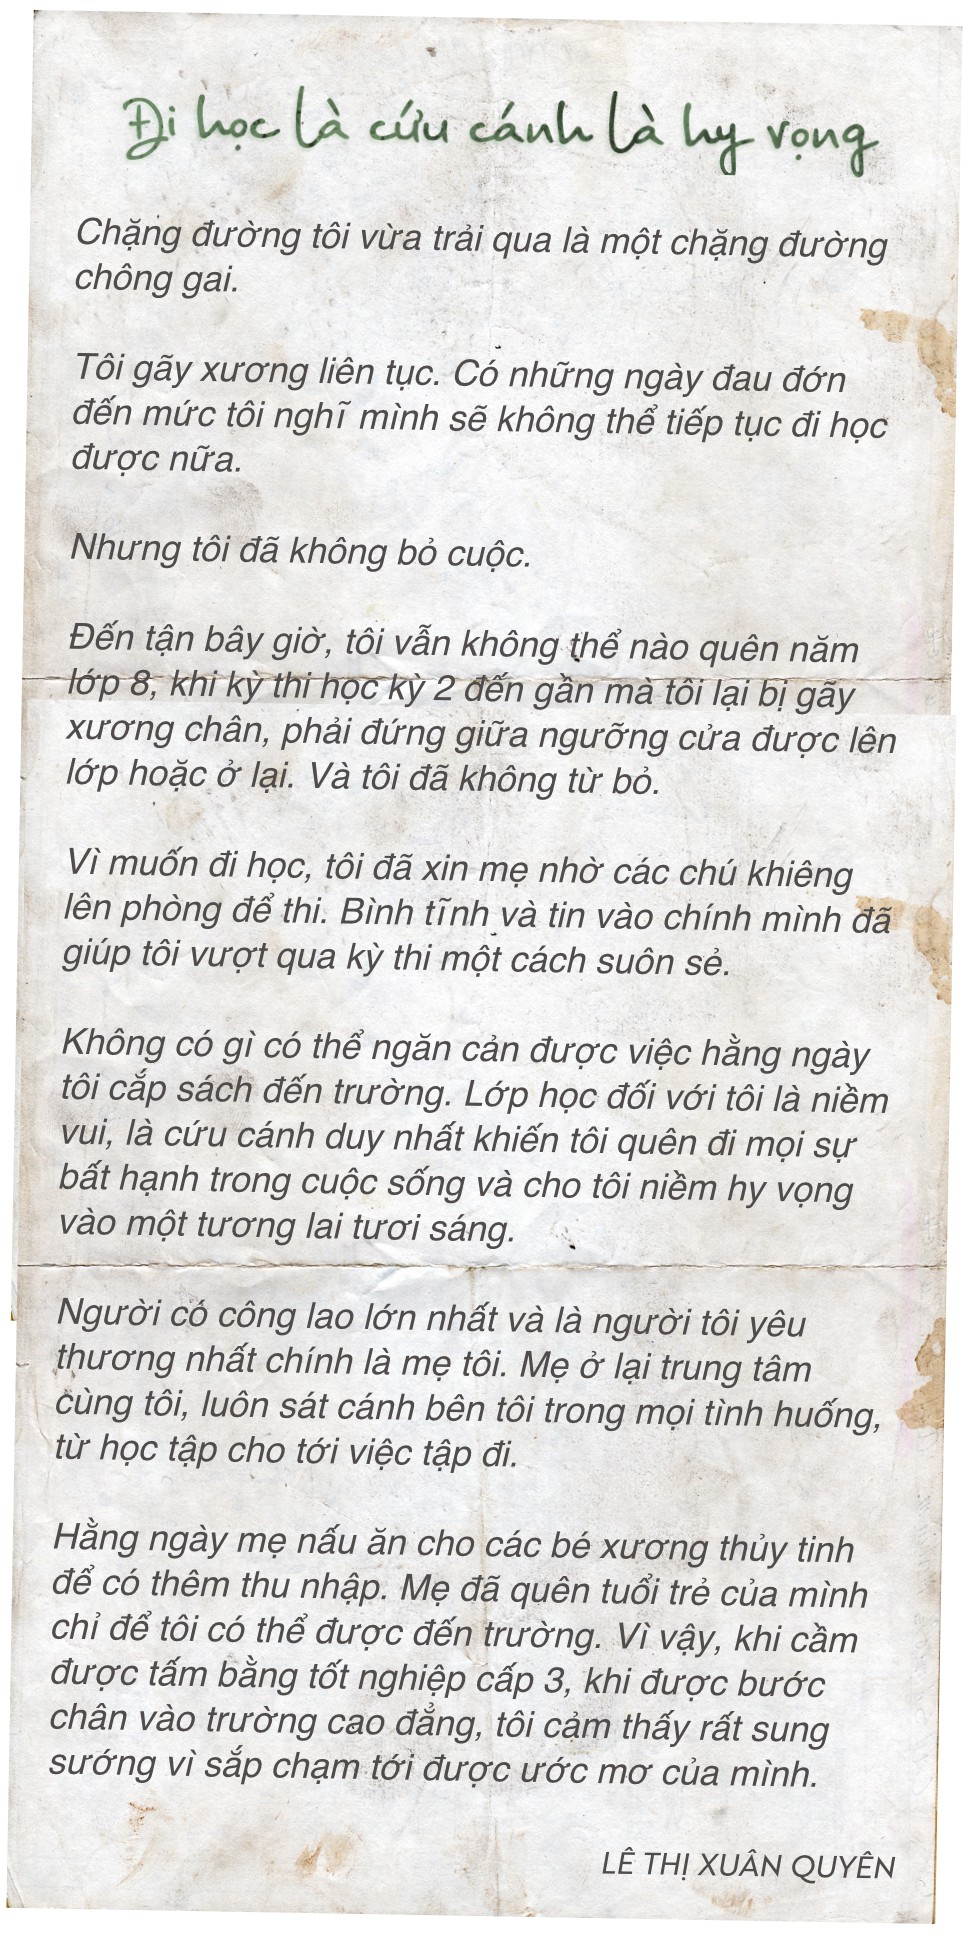 Đi học là cứu cánh là hy vọng
Chặng đường tôi vừa trải qua là một chặng đường
chông gai.
Tôi gãy xương liên tục. Có những ngày đau đớn
đến mức tôi nghĩ mình sẽ không thể tiếp tục đi học
được nữa.
Nhưng tôi đã không bỏ cuộc.
Đến tận bây giờ, tôi vẫn không thể nào quên năm
lớp 8, khi kỳ thi học kỳ 2 đến gần mà tôi lại bị gãy
xương chân, phải đứng giữa ngưỡng cửa được lên
lớp hoặc ở lại. Và tôi đã không từ bỏ.
Vì muốn đi học, tôi đã xin mẹ nhờ các chú khiêng
lên phòng để thi. Bình tĩnh và tin vào chính mình đã
giúp tôi vượt qua kỳ thi một cách suôn sẻ.
Không có gì có thể ngăn cản được việc hằng ngày
tôi cắp sách đến trường. Lớp học đối với tôi là niềm
vui, là cứu cánh duy nhất khiến tôi quên đi mọi sự
bất hạnh trong cuộc sống và cho tôi niềm hy vọng
vào một tương lai tươi sáng.
Người có công lao lớn nhất và là người tôi yêu
thương nhất chính là mẹ tôi. Mẹ ở lại trung tâm
cùng tôi, luôn sát cánh bên tôi trong mọi tình huống,
từ học tập cho tới việc tập đi.
Hằng ngày mẹ nấu ăn cho các bé xương thủy tinh
để có thêm thu nhập. Mẹ đã quên tuổi trẻ của mình
chỉ để tôi có thể được đến trường. Vì vậy, khi cầm
được tấm bằng tốt nghiệp cấp 3, khi được bước
chân vào trường cao đẳng, tôi cảm thấy rất sung
sướng vì sắp chạm tới được ước mơ của mình.
LÊ THỊ XUÂN QUYÊN